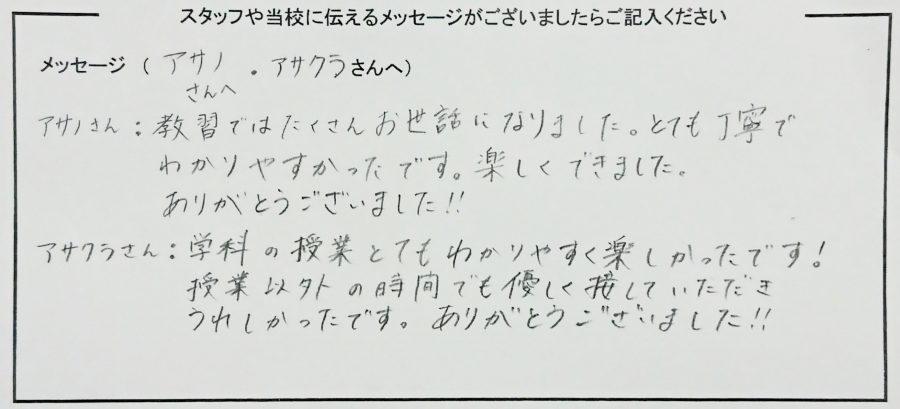 スタッフや当校に伝えるメッセージがございましたらご記入ください
メッセージ ( アサノ ・ アサクラさんへ)
さんへ
アサノさん：教習ではたくさんお世話になりました。とても丁寧で
わかりやすかったです。楽しくできました。
ありがとうございました!!
アサクラさん：学科の授業とてもわかりやすく楽しかったです！
授業以外の時間でも優しく接していただき
うれしかったです。ありがとうございました!!